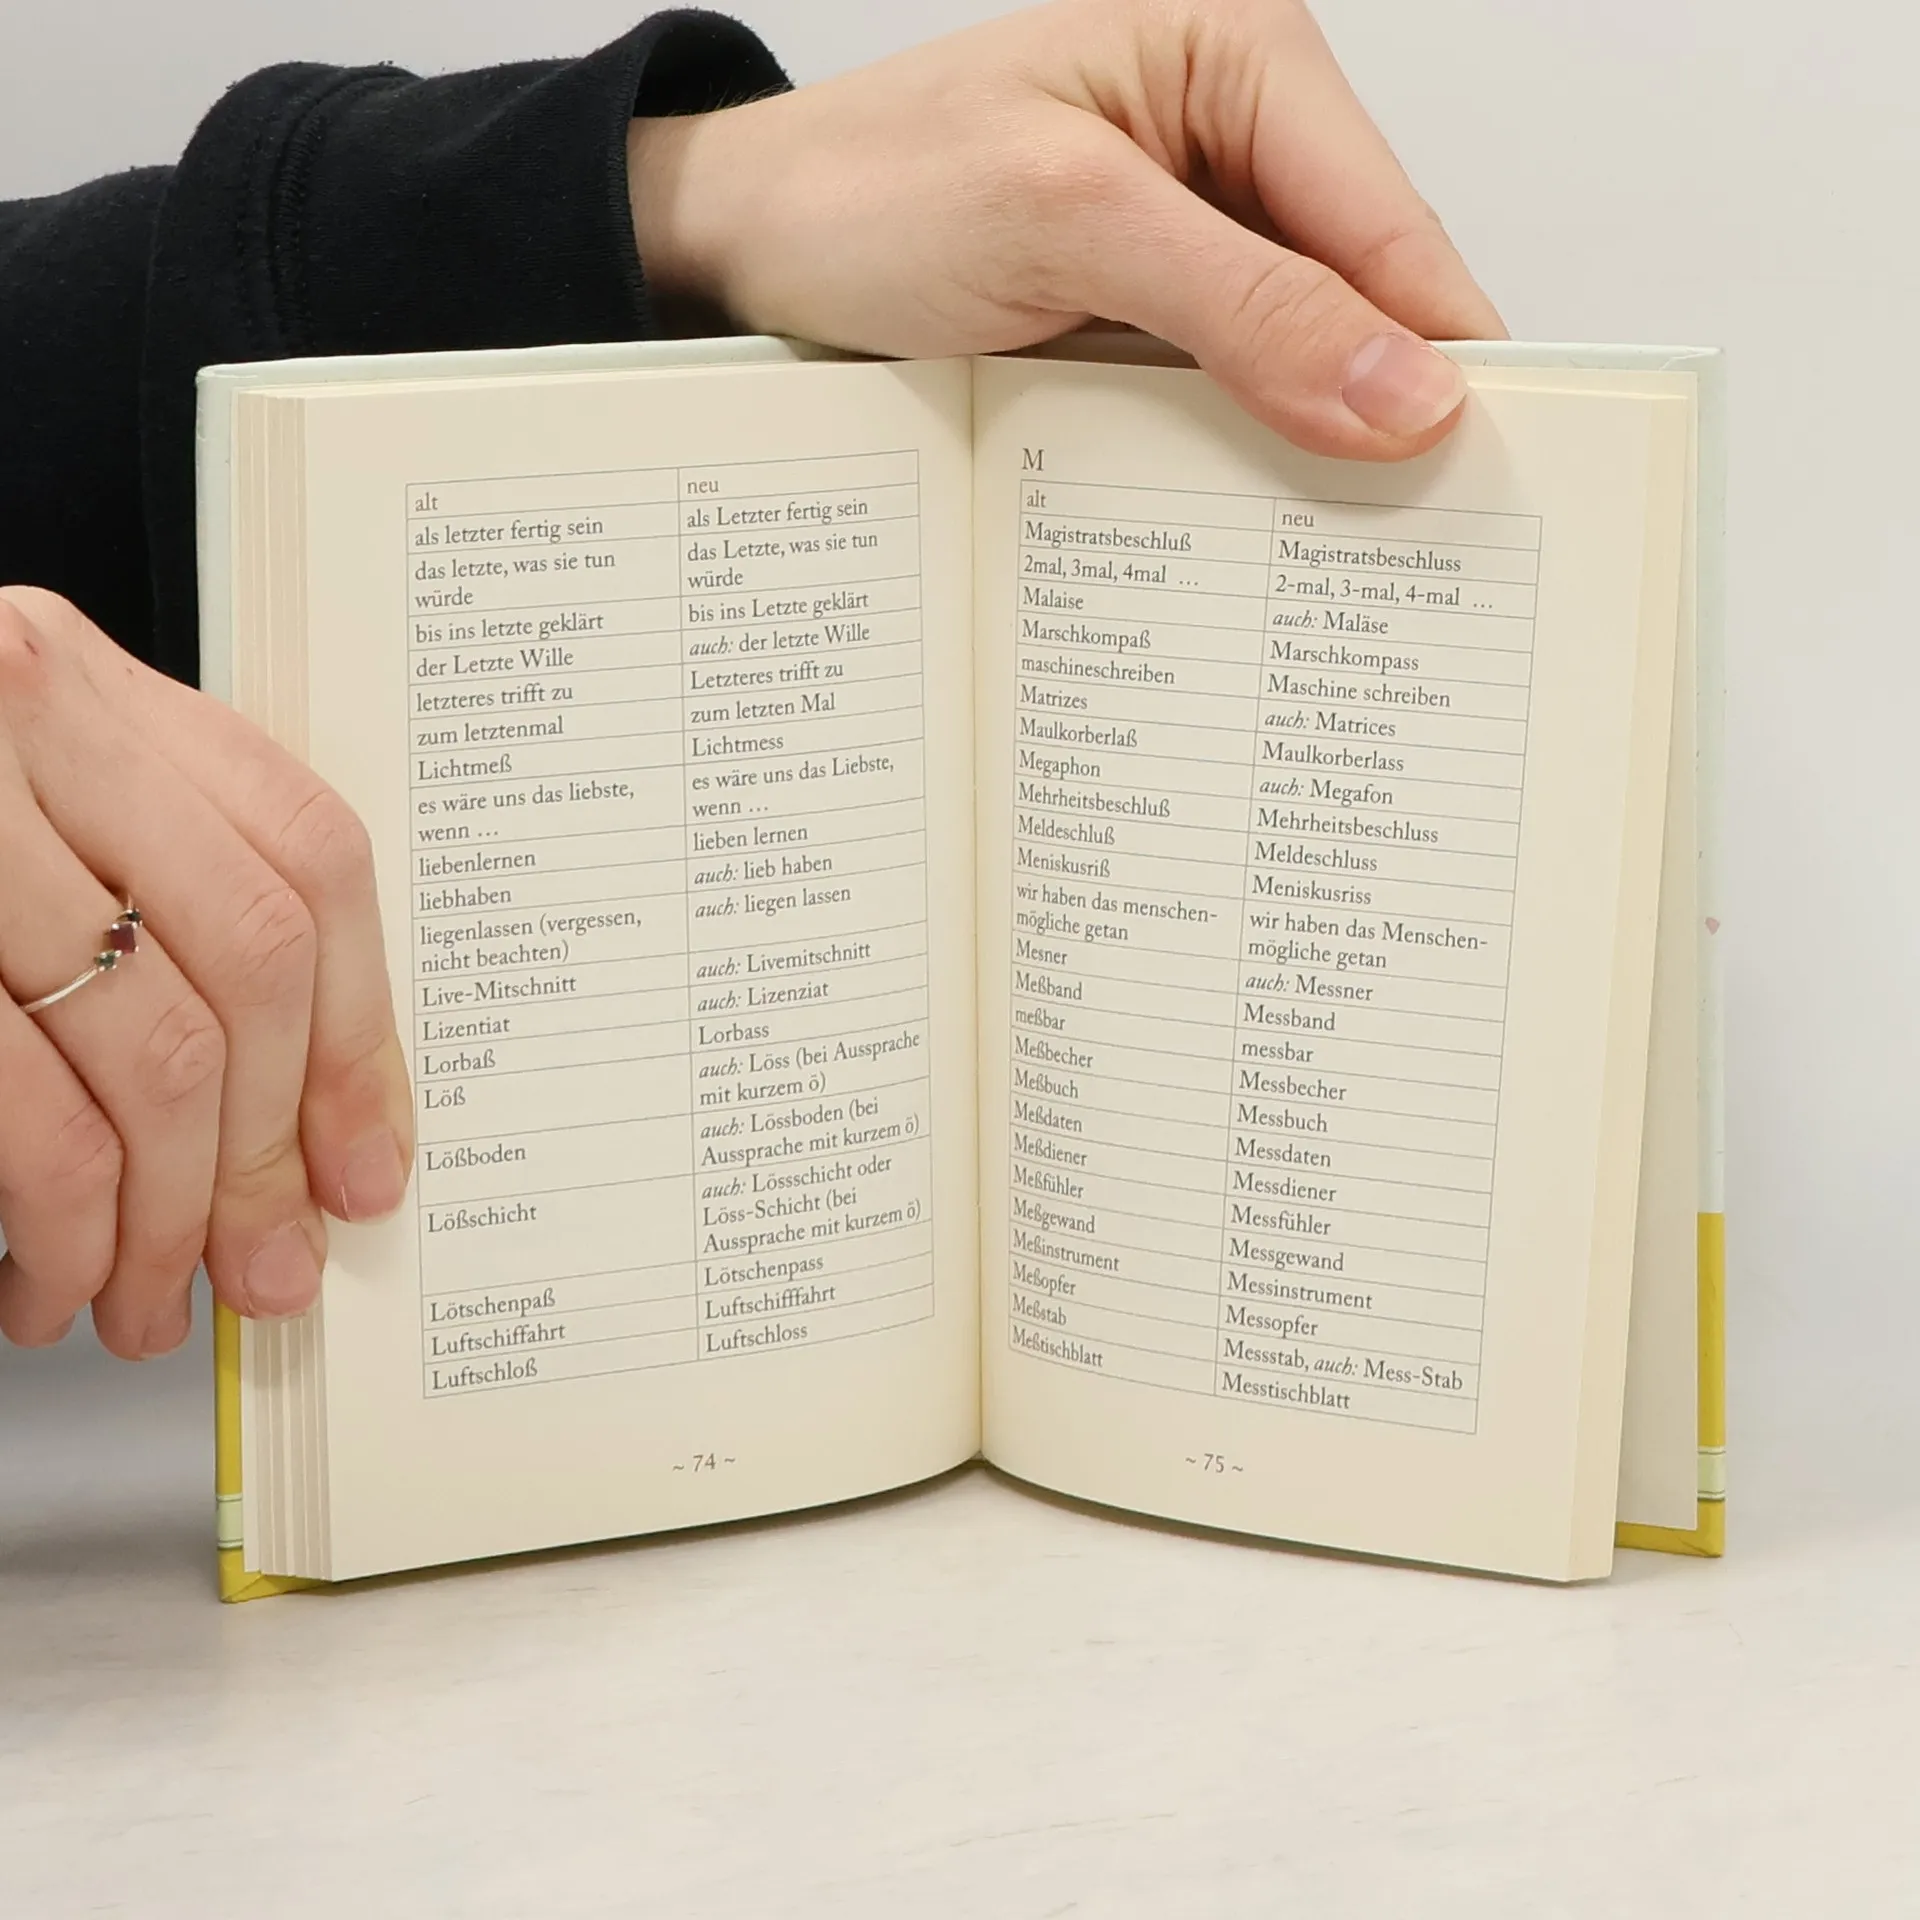 alt neu
als letzter fertig sein als Letzter fertig sein
das letzte, was sie tun das Letzte, was sie tun
würde würde
bis ins letzte geklärt bis ins Letzte geklärt
der Letzte Wille auch: der letzte Wille
letzteres trifft zu Letzteres trifft zu
zum letztenmal zum letzten Mal
Lichtmeß Lichtmess
es wäre uns das liebste, es wäre uns das Liebste,
wenn … wenn …
liebenlernen lieben lernen
liebhaben auch: lieb haben
liegenlassen (vergessen, auch: liegen lassen
nicht beachten)
Live-Mitschnitt auch: Livemitschnitt
Lizentiat auch: Lizenziat
Lorbaß Lorbass
Löß auch: Löss (bei Aussprache
mit kurzem ö)
Lößboden auch: Lössboden (bei
Aussprache mit kurzem ö)
Lößschicht auch: Lössschicht oder
Löss-Schicht (bei
Aussprache mit kurzem ö)
Lötschenpaß Lötschenpass
Luftschiffahrt Luftschifffahrt
Luftschloß Luftschloss
~ 74 ~
M
alt neu
Magistratsbeschluß Magistratsbeschluss
2mal, 3mal, 4mal … 2-mal, 3-mal, 4-mal …
Malaise auch: Maläse
Marschkompaß Marschkompass
maschineschreiben Maschine schreiben
Matrizes auch: Matrices
Maulkorberlaß Maulkorberlass
Megaphon auch: Megafon
Mehrheitsbeschluß Mehrheitsbeschluss
Meldeschluß Meldeschluss
Meniskusriß Meniskusriss
wir haben das menschen- wir haben das Menschen-
mögliche getan mögliche getan
Mesner auch: Messner
Meßband Messband
meßbar messbar
Meßbecher Messbecher
Meßbuch Messbuch
Meßdaten Messdaten
Meßdiener Messdiener
Meßfühler Messfühler
Meßgewand Messgewand
Meßinstrument Messinstrument
Meßopfer Messopfer
Meßstab Messstab, auch: Mess-Stab
Meßtischblatt Messtischblatt
~ 75 ~